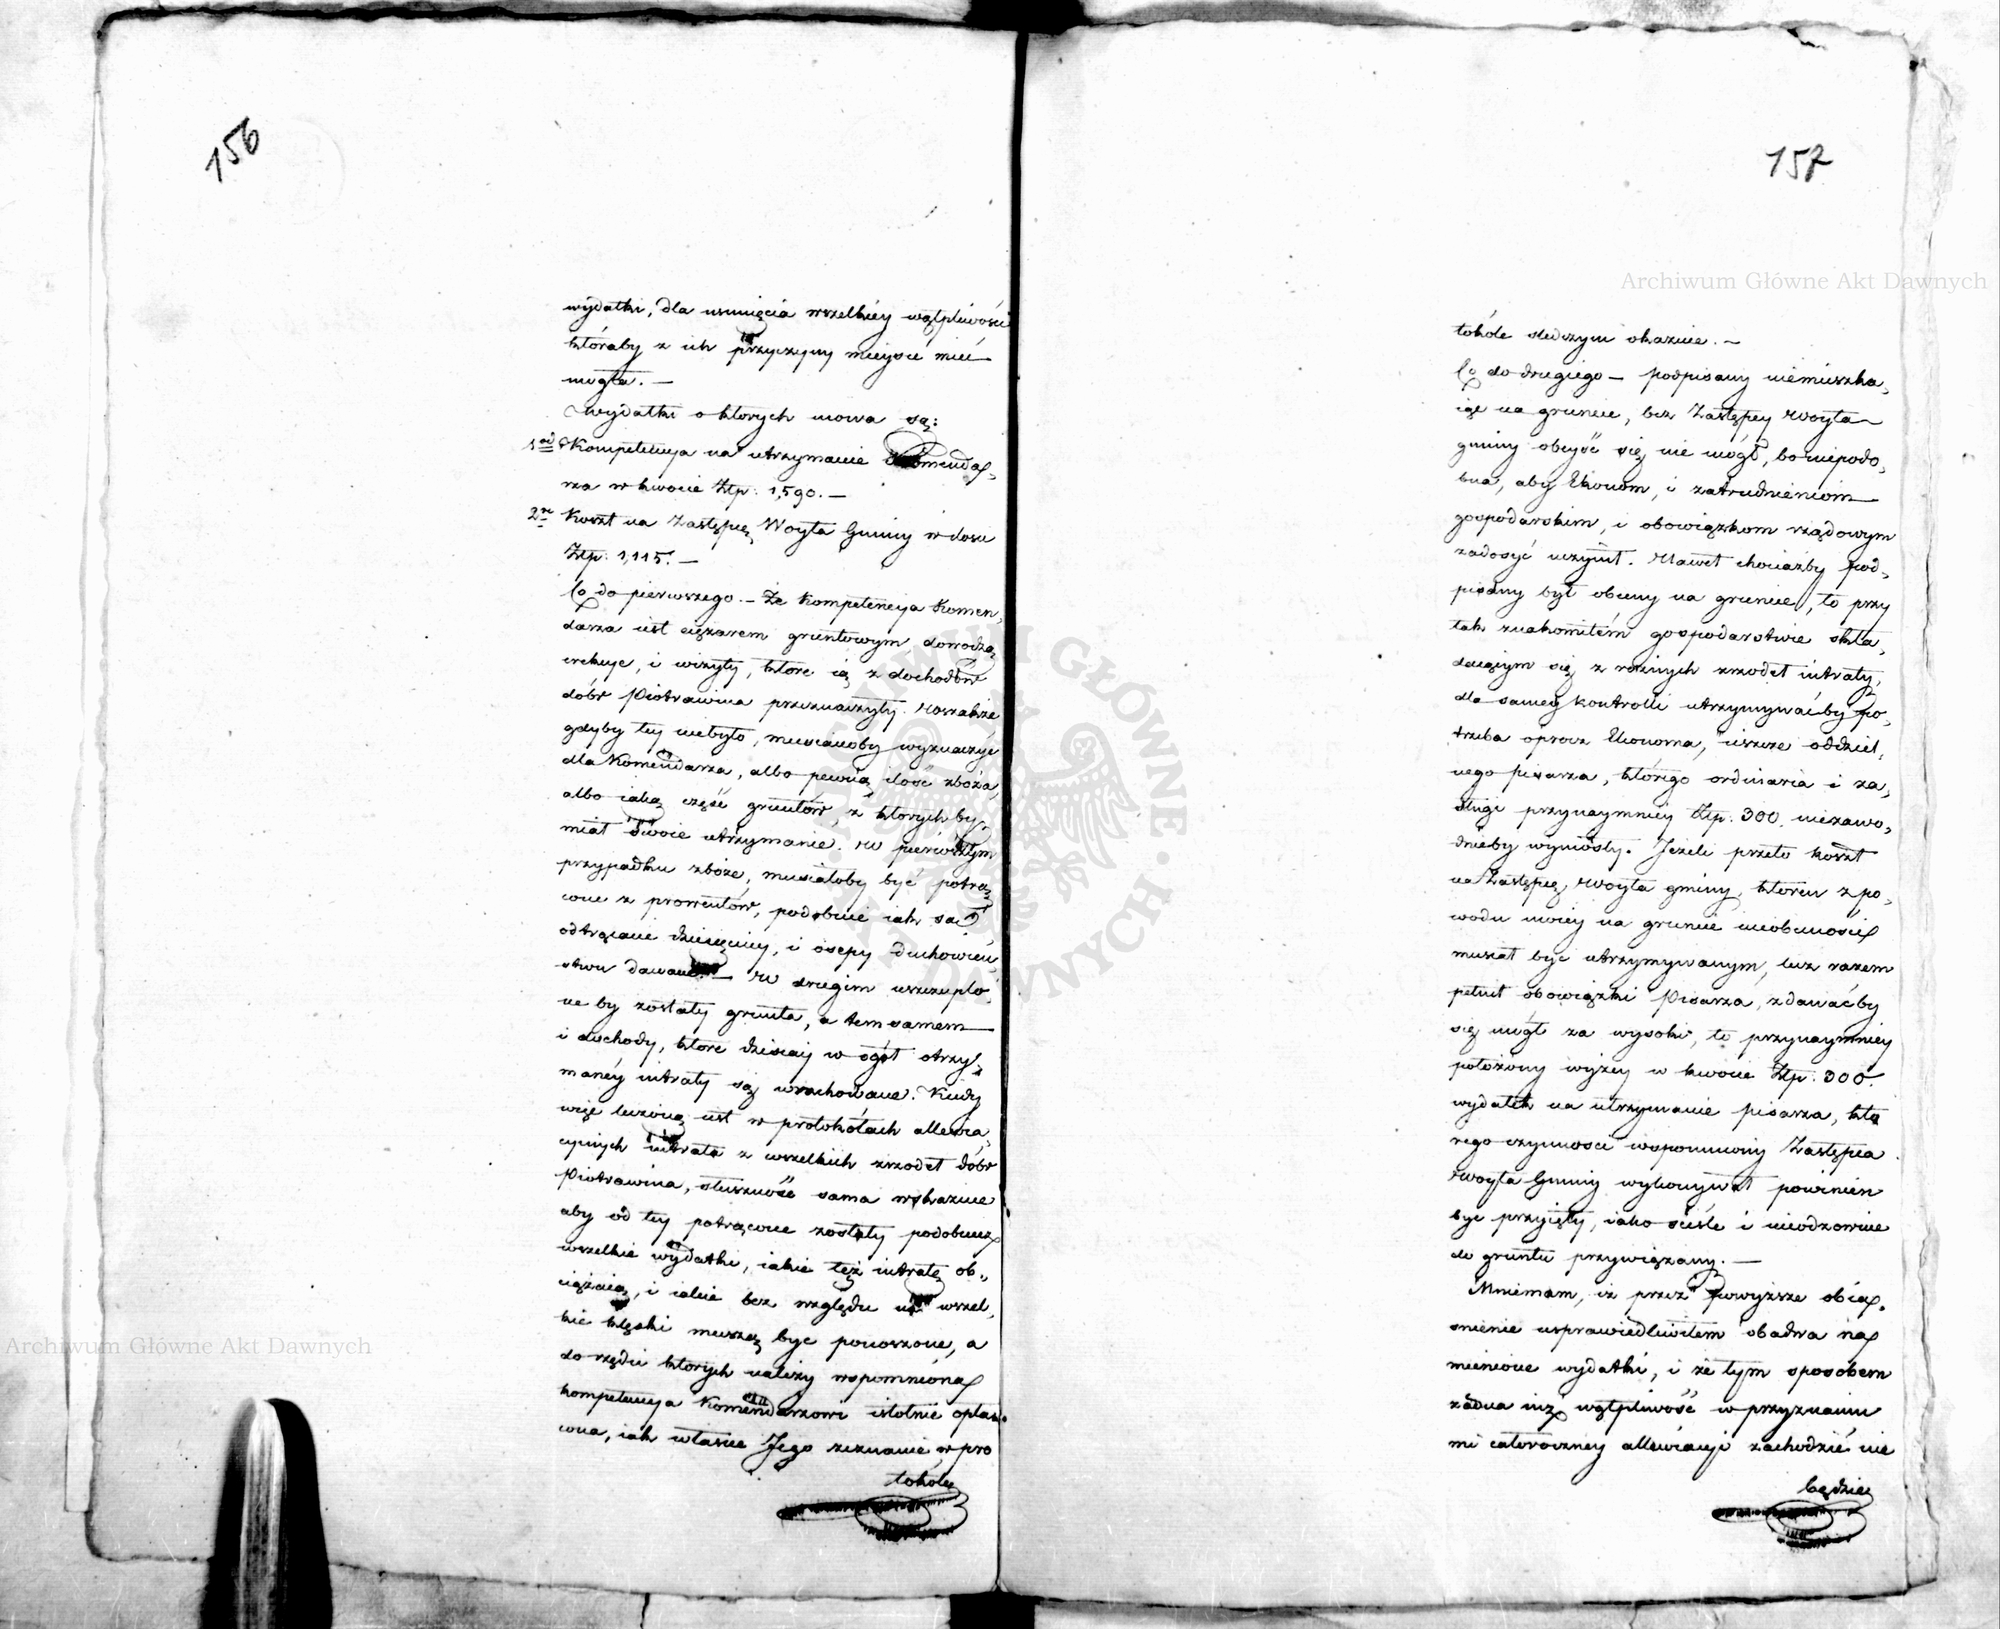 156
wydatki, dla usunięcia wszelkiéy wątpliwości
któraby z ich przyczyny mieysce mieć
mogła. —
Wydatki o ktorych mowa są:
1od Kompetencya na utrzymanie Komenda-
rza w kwocie Złp: 1,590. —
2re Koszt na Zastępcę Woyta Gminy w ilosci
Złp: 1,115. —
Co do pierwszego. — Że Kompetencya Komen,
darza iest ciężarem gruntowym dowodzą
erekcye, i wizyty, ktore ią z dochodów
dóbr Piotrawina przeznaczyły. Wszakże
gdyby tey niebyło, musianoby wyznaczyć
dla Komendarza, albo pewną ilość zboża,
albo iaką część gruntów, z ktorych by
miał swoie utrzymanie. W pierwszym
przypadku zboże, musiałoby być potrą,
cone z prowentów, podobnie iak są
odtrącane dziesięciny, i osepy duchowień,
stwu dawane. — W drugim uszczuplo,
ne by zostały grunta, a tem samem
i dochody, ktore dzisiaj w ogół otrzy,
manéy intraty są wrachowane. Kiedy
więc liczoną iest w protokółach allewia,
cyinych intrata z wszelkich zrzodeł dóbr
Piotrawina, słuszność sama wskazuie
aby od tey potrącone zostały podobnież
wszelkie wydatki, iakie też intratę ob,
ciążaią, i iakie bez względu na wszel,
kie klęski muszą byc ponoszone, a
do rzędu ktorych należy wspomniona
kompetencya Komendarzowi istotnie opłaca
cona, iak własne Jego zeznanie w pro
tokóle
157
tokóle sledczym okazuie. —
Co do drugiego — podpisany niemieszka,
iąc na gruncie, bez Zastępcy Woyta
gminy obeyść się nie mógł, bo niepodo,
bna, aby Ekonom, i zatrudnieniom
gospodarskim, i obowiązkom rządowym
zadosyć uczynił. Nawet chociażby pod,
pisany był obecny na gruncie, to przy
tak znakomitém gospodarstwie skła,
daiącym się z roźnych zrzodeł intraty,
dla samey kontrolli utrzymywać by po,
trzeba oprocz Ekonoma, ieszcze oddziel,
nego pisarza, którego ordinaria i za,
sługi przynaymniey Złp: 300. niezawo,
dnieby wyniosły. Jeżeli przeto koszt
na Zastępcę Woyta gminy, ktoren z po,
wodu moiey na gruncie nieobecności
musiał byc utrzymywanym, lecz razem
pełnił obowiązki Pisarza, zdawać by
się mógł za wysoki, to przynaymniey
położony wyżey w kwocie Złp: 300.
wydatek na utrzymanie pisarza, kto
rego czynnosci wspomniony Zastępca
Woyta Gminy wykonywał powinien
byc przyięty, iako scisle i nieodzownie
do gruntu przywiązany. —
Mniemam, iż przez powyższe obia,
snienie usprawiedliwiłem obadwa na
mienione wydatki, i że tym sposobem
żadna iuż wątpliwość w przyznaniu
mi całoroczney allewiacyi zachodzić nie
będzie
Archiwum Główne Akt Dawnych
Archiwum Główne Akt Dawnych